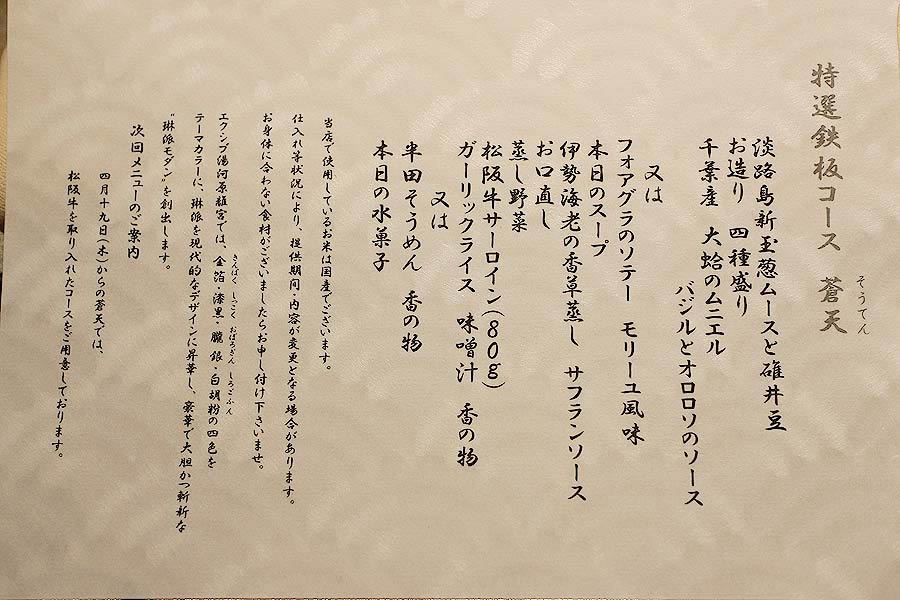 特選鉄板コース 蒼天
そうてん
淡路島新玉葱ムースと碓井豆
お造り 四種盛り
千葉産 大蛤のムニエル
バジルとオロロソのソース
又は
フォアグラのソテー モリーユ風味
本日のスープ
伊勢海老の香草蒸し サフランソース
お口直し
蒸し野菜
松阪牛サーロイン(80g)
ガーリックライス 味噌汁 香の物
又は
半田そうめん 香の物
本日の水菓子
当店で使用しているお米は国産でございます。
仕入れ等状況により、提供期間・内容が変更となる場合があります。
お身体に合わない食材がございましたらお申し付け下さいませ。
エクシブ湯河原離宮では、金箔・漆黒・朧銀・白胡粉の四色を
きんぱく しっこく おぼろぎん しろごふん
テーマカラーに、琳派を現代的なデザインに昇華し、豪華で大胆かつ斬新な
"琳派モダン"を創出します。
次回メニューのご案内
四月十九日(木)からの蒼天では、
松阪牛を取り入れたコースをご用意しております。